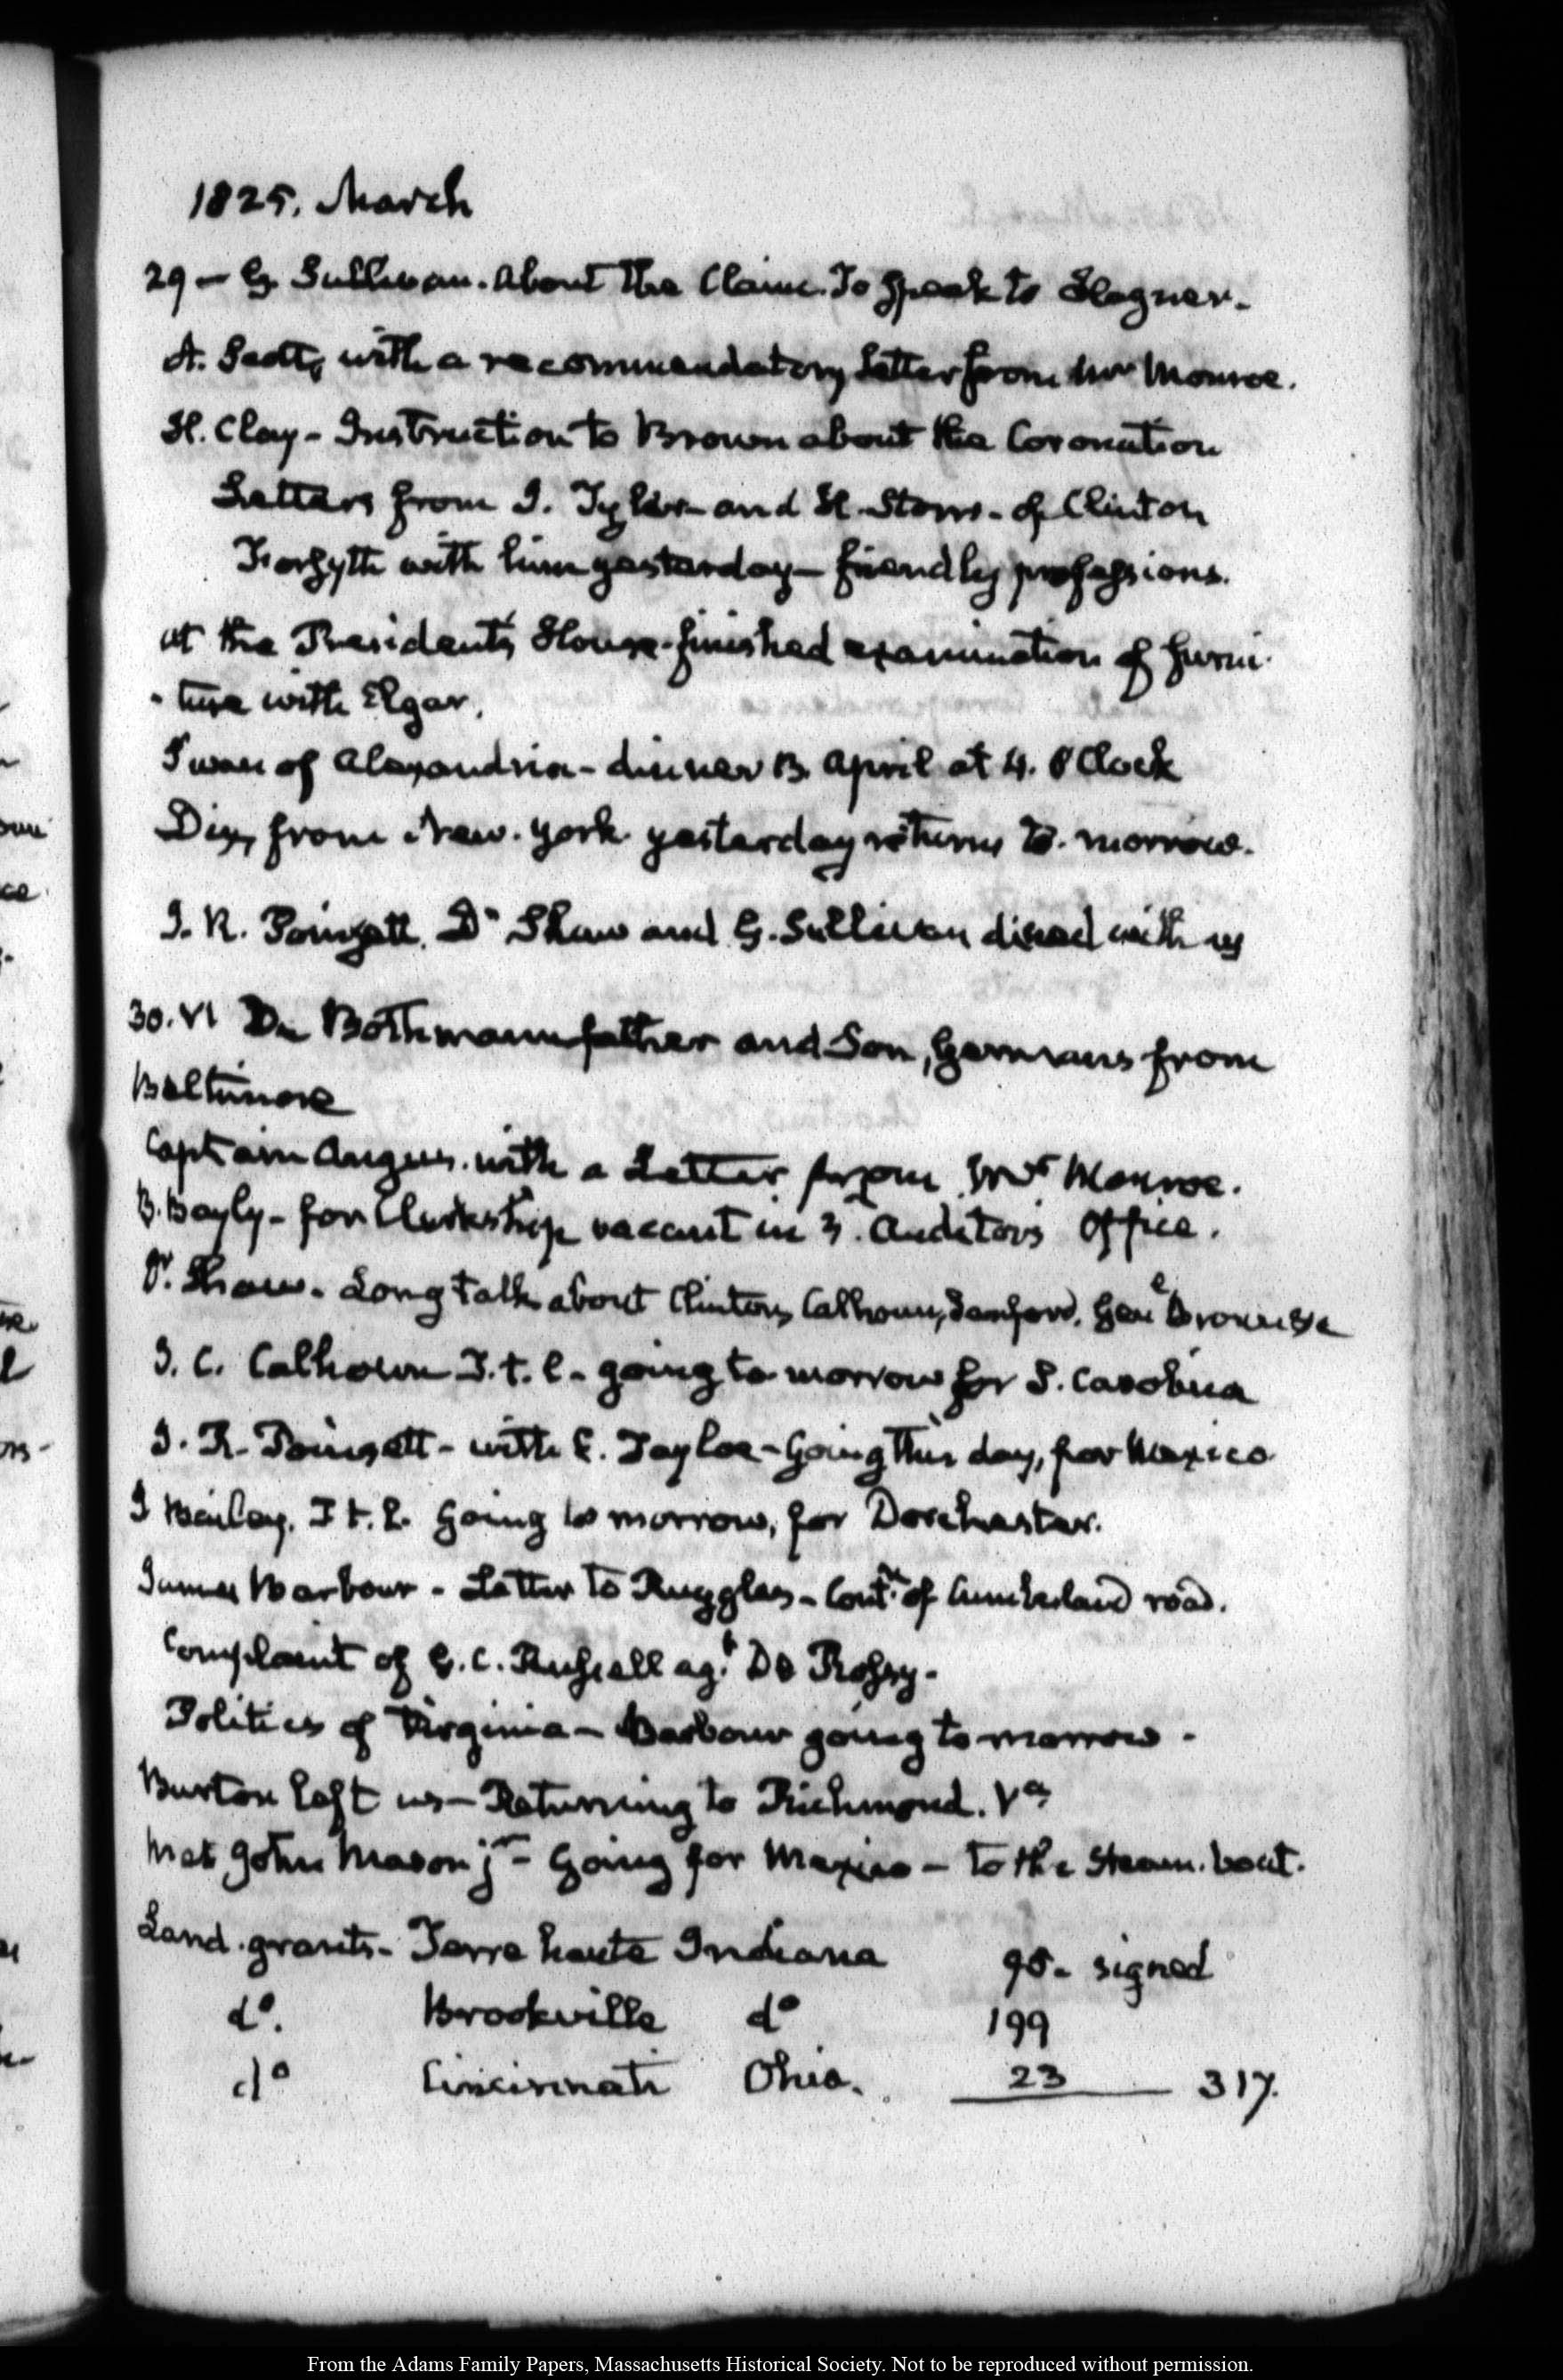 1825. March
29 — G. Sullivan. About the Claim. To speak to Hagner.
A. Scott, with a recommendatory Letter from Mr Monroe.
H. Clay - Instruction to Brown about the Coronation
Letters from J. Tyler and H. Storrs - of Clinton
Forsyth with him yesterday - friendly professions.
at the President's House - finished examination of furni-
-ture with Elgar.
Swan of Alexandria - dinner 13. April at 4. O'Clock
Dix, from New-York yesterday returns to-morrow.
J. R. Poinsett. Dr Shaw and G. Sullivan dined with us
30. VI De Bothmann father and Son, Germans from
Baltimore
Captain Angus. with a Letter from Mr Monroe.
B. Bayly - for Clerkship vacant in 3. Auditor's Office.
Dr. Shaw. Long talk about Clinton, Calhoun, Sanford, Genl Brown &c
J. C. Calhoun T. t. l. - going to-morrow for S. Carolina
J. R. Poinsett - with E. Tayloe - Going this day, for Mexico
J Bailey. T. t. l. Going to morrow, for Dorchester.
James Barbour - Letter to Ruggles - Contn of Cumberland road.
Complaint of G. C. Russell agt De Rossy -
Politics of Virginia - Barbour going to-morrow -
Burton left us - Returning to Richmond. Va
Met John Mason jr - Going for Mexico - to the Steam-boat.
Land-grants - Terre haute Indiana 95 - signed
do. Brookville do 199
do Cincinnati Ohio. 23 317.
From the Adams Family Papers, Massachusetts Historical Society. Not to be reproduced without permission.